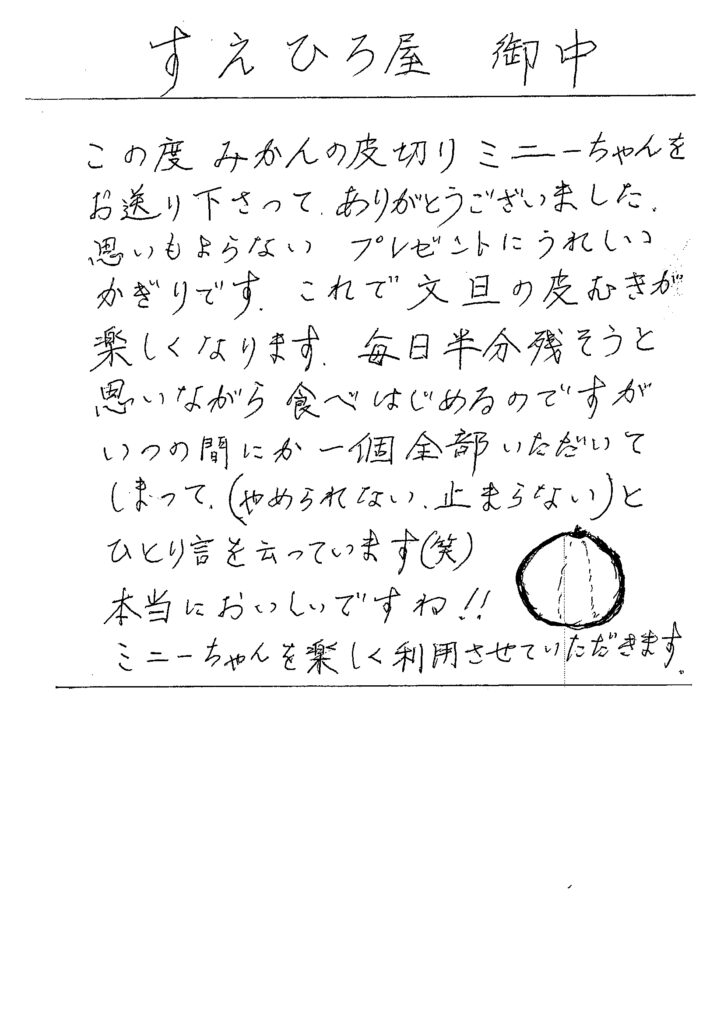 すえひろ屋 御中
この度 みかんの皮切り ミニーちゃんを
お送り下さって、ありがとうございました。
思いもよらない プレゼントにうれしい
かぎりです。これで文旦の皮むきが
楽しくなります。毎日半分残そうと
思いながら食べはじめるのですが
いつの間にか一個全部いただいて
しまって、(やめられない、止まらない)と
ひとり言を云っています(笑)
本当においしいですね!!
ミニーちゃんを楽しく利用させていただきます。